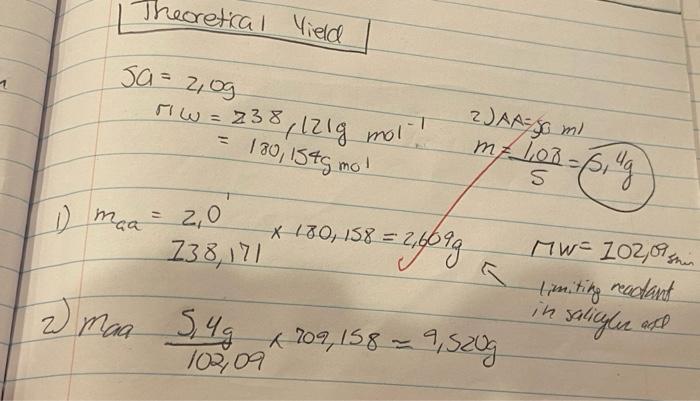 Theoretical Yield
SA = 2,0g
MW = 238,121g mol-1
= 180,154g mol
2) AA = 50 ml
m = 1,08 / 5 = 5,4g
1) maa = 2,0 / 238,171 × 180,158 = 2,609g
MW = 102,09
limiting reactant
in
2) maa 5,4g / 102,09 × 209,158 = 9,520g